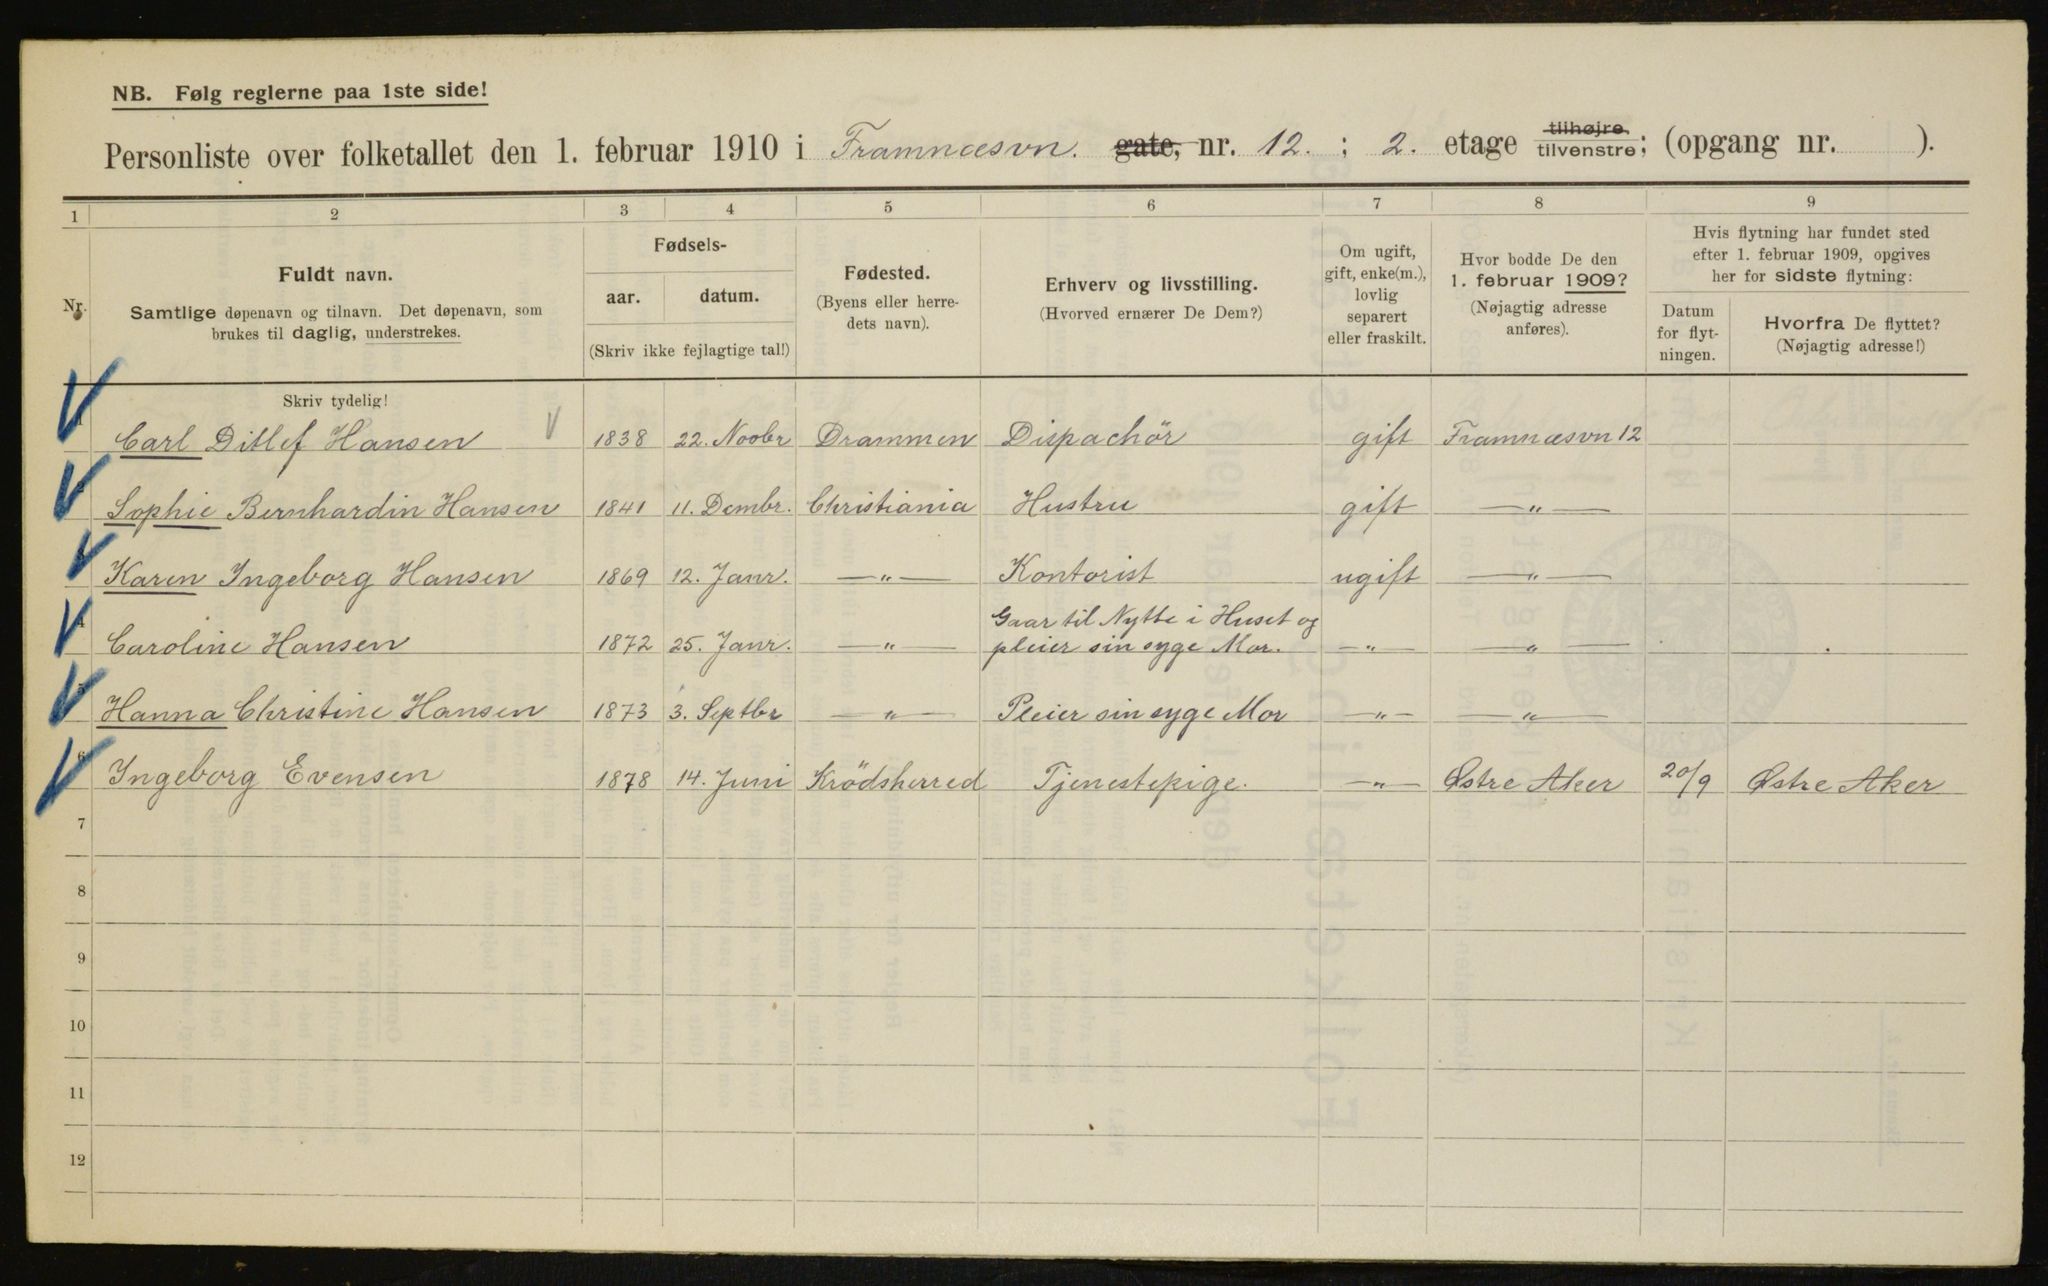 NB. Følg reglerne paa 1ste side!
Personliste over folketallet den 1. februar 1910 i Framnæsvn. gate, nr. 12. ; 2. etage tilhøjre tilvenstre; (opgang nr. ).
1 2 3 4 5 6 7 8 9
Nr.
Fuldt navn.
Samtlige døpenavn og tilnavn. Det døpenavn, som
brukes til daglig, understrekes.
Fødsels-
aar. datum.
(Skriv ikke fejlagtige tal!)
Fødested.
(Byens eller herre-
dets navn).
Erhverv og livsstilling.
(Hvorved ernærer De Dem?)
Om ugift,
gift, enke(m.),
lovlig
separert
eller fraskilt.
Hvor bodde De den
1. februar 1909?
(Nøjagtig adresse
anføres).
Hvis flytning har fundet sted
efter 1. februar 1909, opgives
her for sidste flytning:
Datum
for flyt-
ningen.
Hvorfra De flyttet?
(Nøjagtig adresse!)
Skriv tydelig!
1 Carl Ditlef Hansen 1838 22. Novbr Drammen Dispachör gift Framnæsvn 12
2 Sophie Bernhardin Hansen 1841 11. Dembr. Christiania Hustru gift —"—
3 Karen Ingeborg Hansen 1869 12. Janr. —"— Kontorist ugift —"—
4 Caroline Hansen 1872 25. Janr. —"— Gaar til Nytte i Huset og
pleier sin syge Mor. —"— —"—
5 Hanna Christine Hansen 1873 3. Septbr —"— Pleier sin syge Mor —"— —"—
6 Ingeborg Evensen 1878 14. Juni Krödsherred Tjenestepige. —"— Østre Aker 20/9 Østre Aker
7
8
9
10
11
12